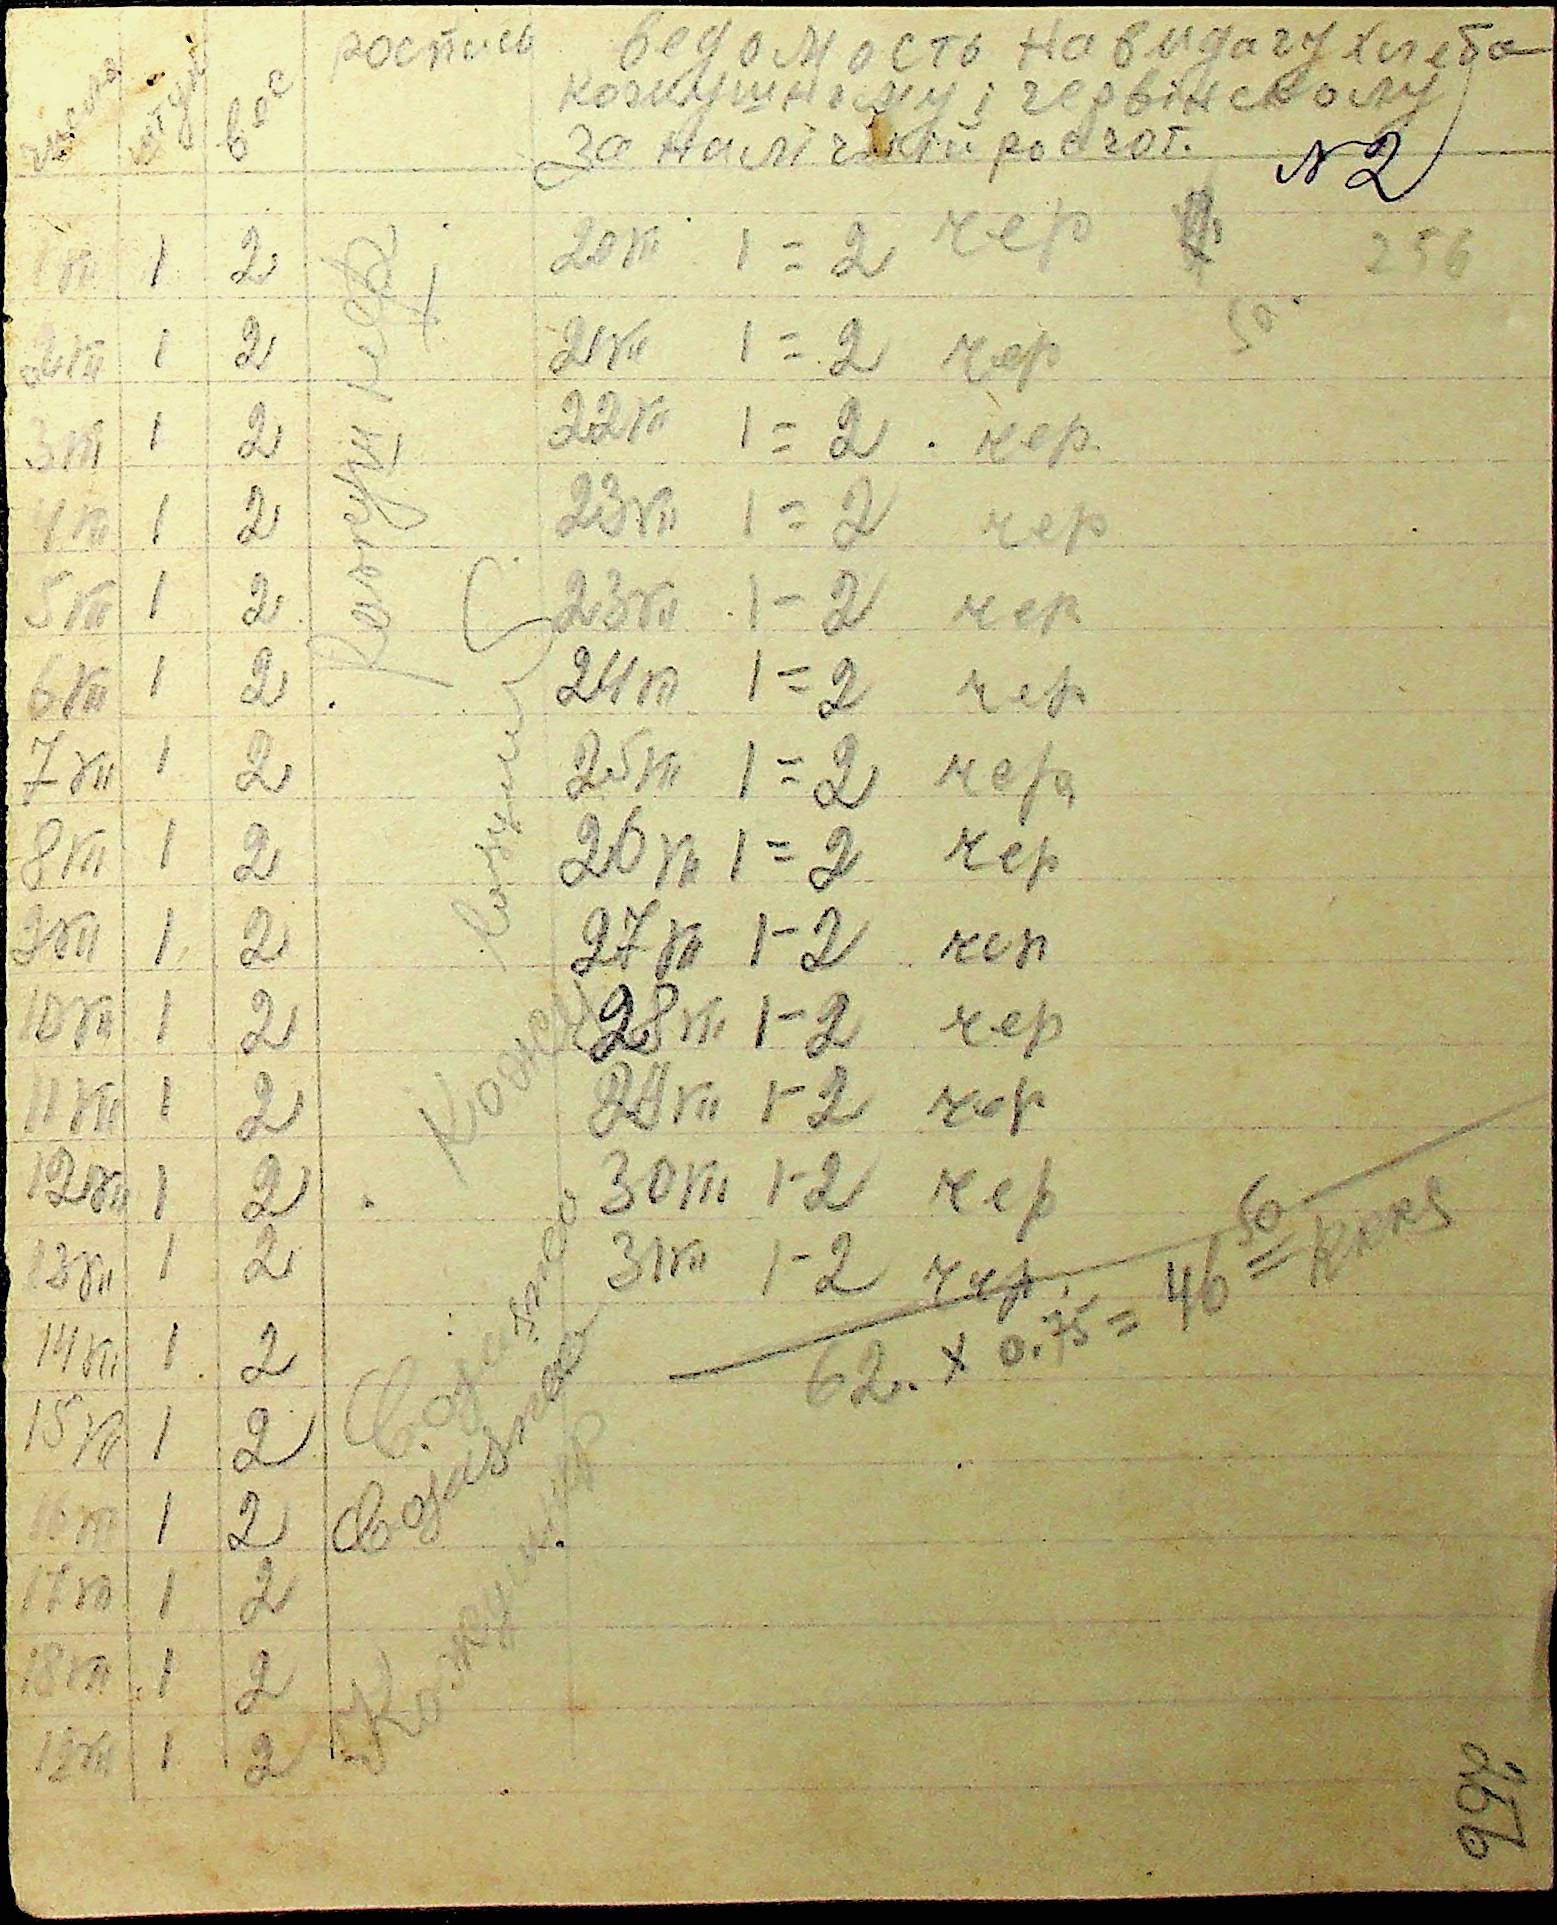 числа штук вос роспись
ведомость на видачу хлеба
кожушному і червінскому
за налічний росчот.
N 2
256
50
1 VII 1 2
2 VII 1 2
3 VII 1 2
4 VII 1 2
5 VII 1 2
6 VII 1 2
7 VII 1 2
8 VII 1 2
9 VII 1 2
10 VII 1 2
11 VII 1 2
12 VII 1 2
13 VII 1 2
14 VII 1 2
15 VII 1 2
16 VII 1 2
17 VII 1 2
18 VII 1 2
19 VII 1 2
Кожушнр
20 VII 1 = 2 чер
21 VII 1 = 2 чер
22 VII 1 = 2 чер
23 VII 1 = 2 чер
23 VII 1 - 2 чер
24 VII 1 = 2 чер
25 VII 1 = 2 чер
26 VII 1 = 2 чер
27 VII 1 - 2 чер
28 VII 1 - 2 чер
29 VII 1 - 2 чер
30 VII 1 - 2 чер
31 VII 1 - 2 чер
62. x 0.75 = 46 50 =